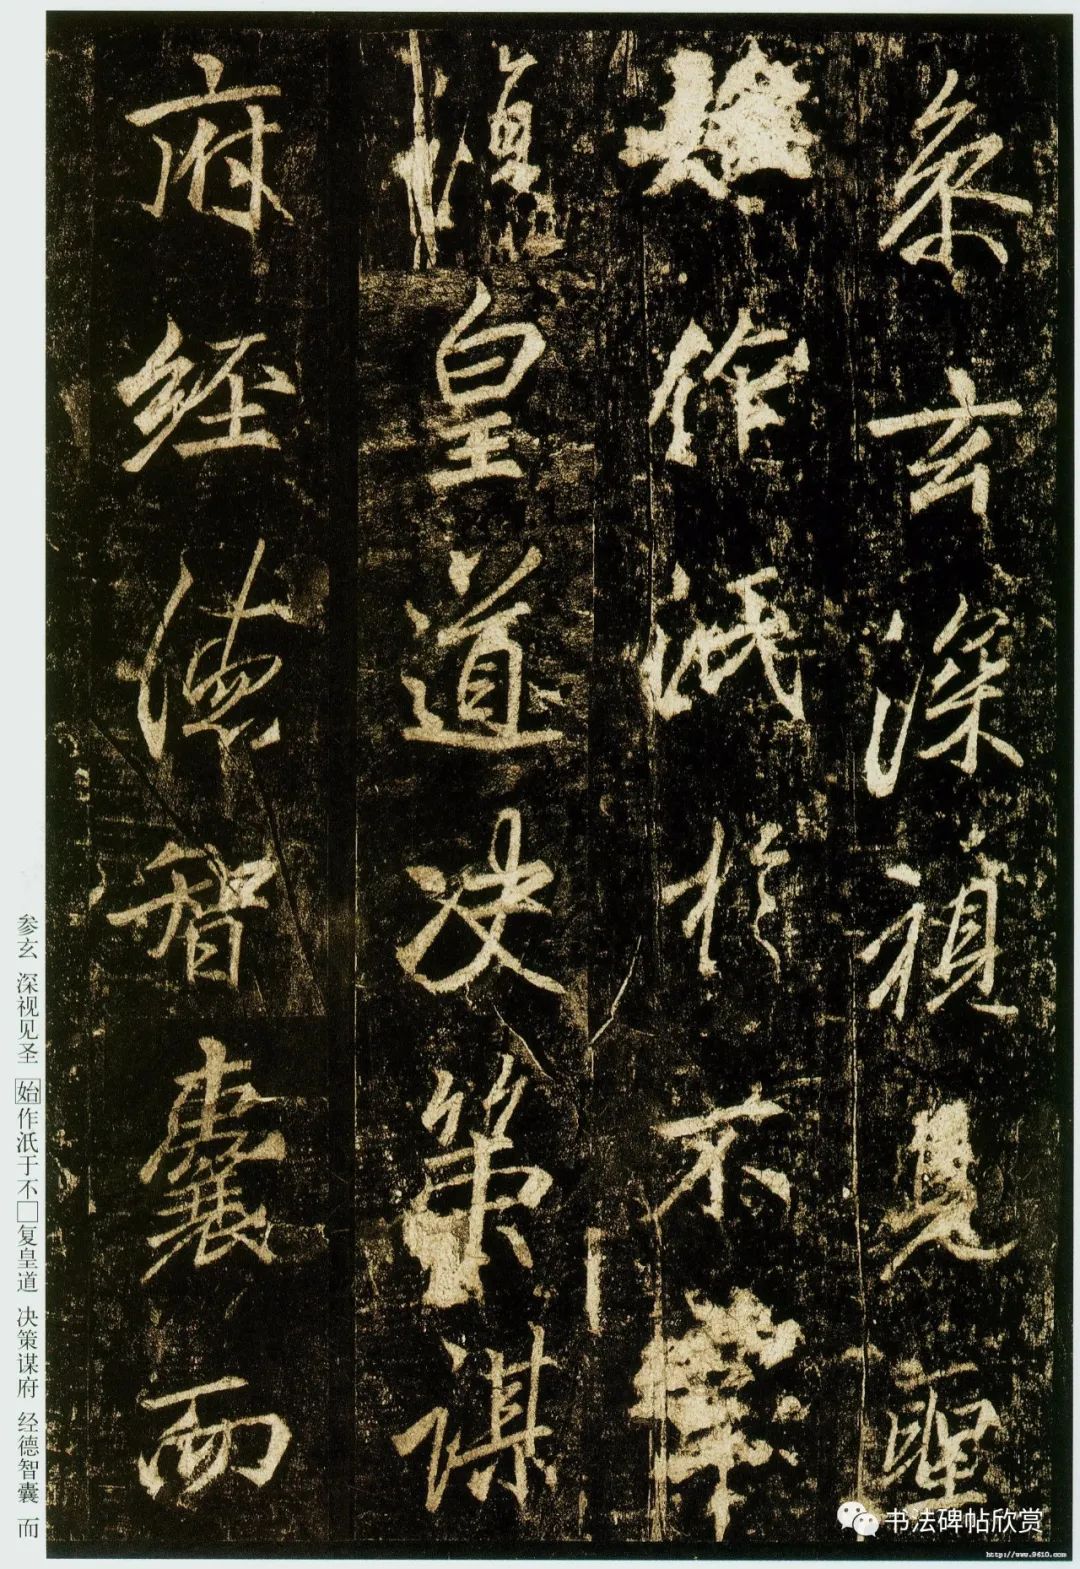 叅玄深視見聖
作汦於不
復皇道決策謀
府經德智囊而
参玄 深视见圣 始作汦于不□复皇道 决策谋府 经德智囊 而
书法碑帖欣赏
http://www.9610.com